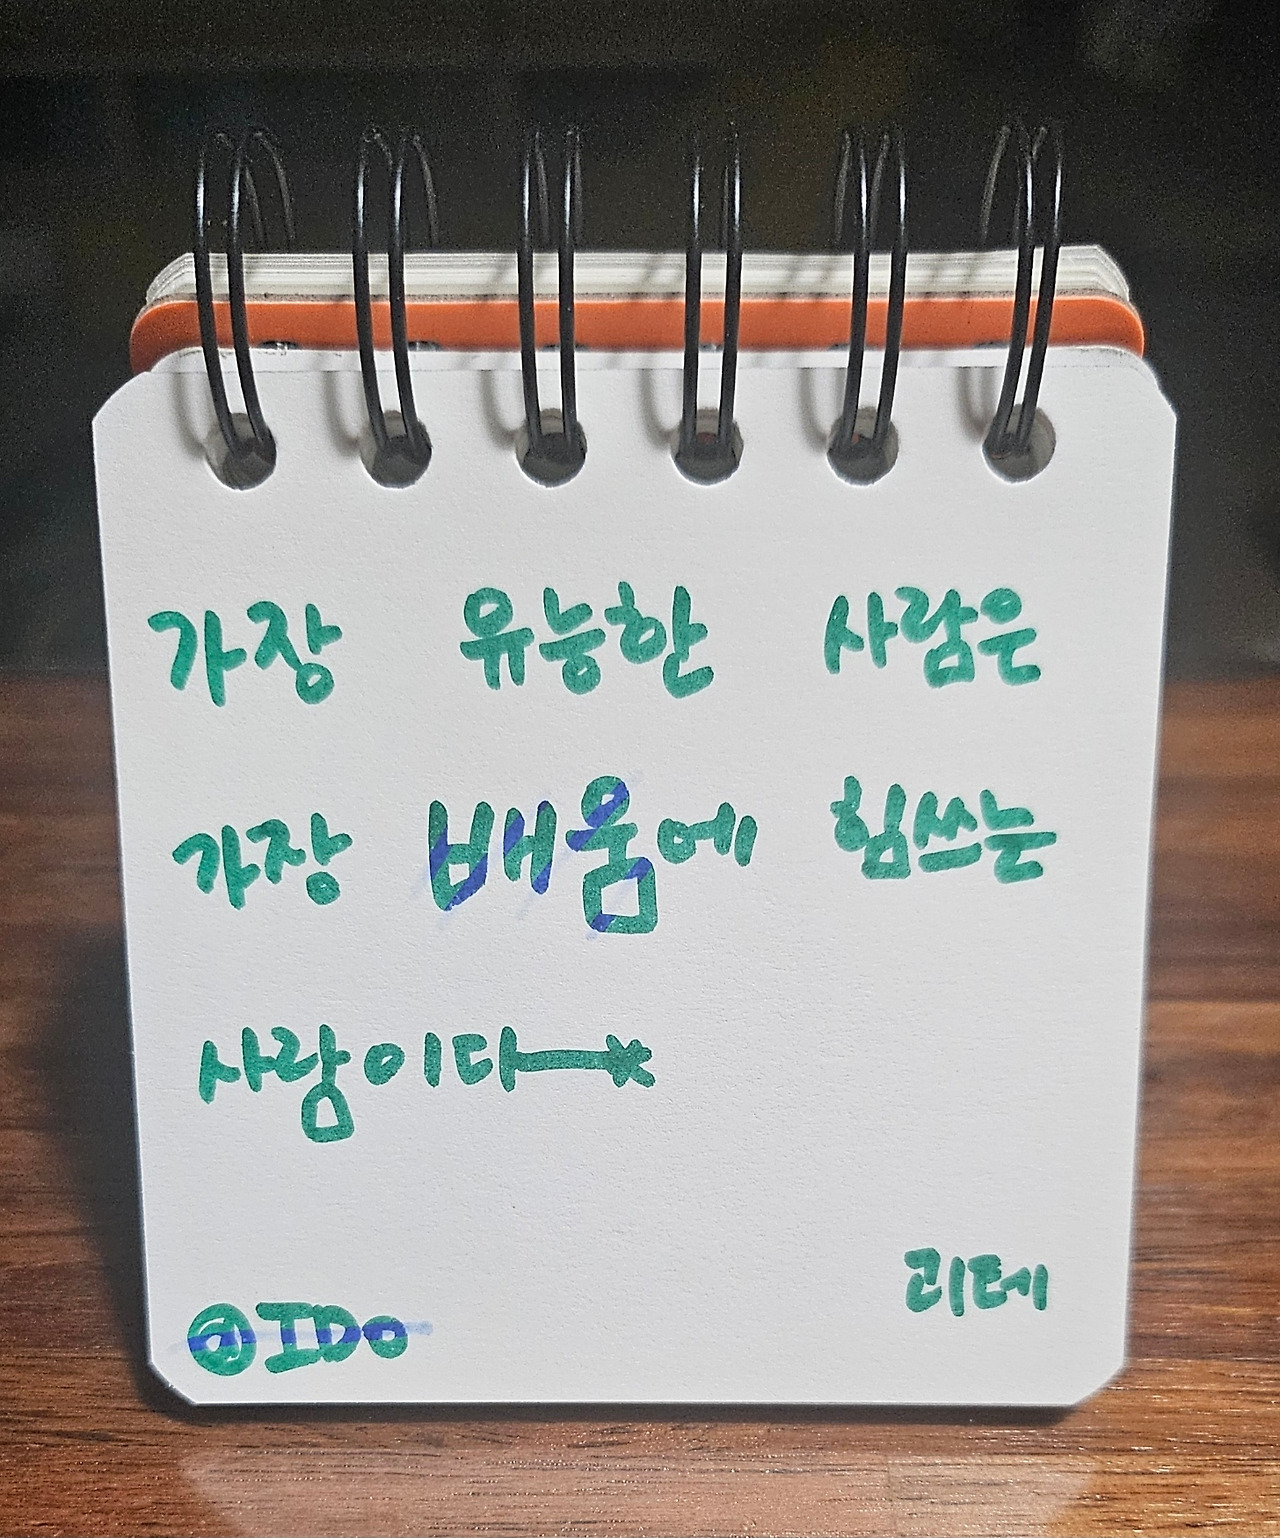 가장 유능한 사람은
가장 배움에 힘쓰는
사람이다
괴테
@IDo